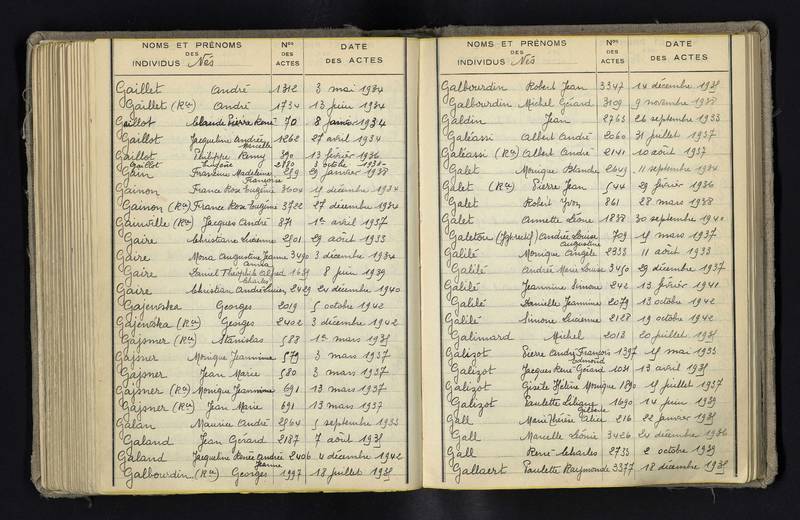 NOMS ET PRÉNOMS DES INDIVIDUS Nés | Nos DES ACTES | DATE DES ACTES
Gaillet André 1312 3 mai 1934
Gaillet (Rce) André 1734 13 juin 1934
Gaillot Claude Pierre René 70 8 janvier 1934
Gaillot Jacqueline Andrée Marcelle 1262 27 avril 1934
Gaillot Philippe Remy 390 13 février 1936
Gaillot 2980 3 octobre
Gain Francine Madeleine Françoise 259 29 janvier 1938
Gainon France Rose Eugénie 3604 15 décembre 1934
Gainon (Rce) France Rose Eugénie 3722 27 décembre 1934
Gainville (Rce) Jacques André 871 1er avril 1937
Gaire Christiane Lucienne 2501 29 août 1933
Gaire Mona Augustine Jeanne 3490 3 décembre 1934
Gaire Daniel Théophile Alfred Charles 8 juin 1939
Gaire Christian André 2429 24 décembre 1940
Gajewska Georges 2019 5 octobre 1942
Gajewska (Rce) Georges 2402 3 décembre 1942
Gajsner (Rce) Stanislas 588 1er mars 1935
Gajsner Monique Jeannine 579 3 mars 1937
Gajsner Jean Marie 580 3 mars 1937
Gajsner (Rce) Monique Jeannine 691 13 mars 1937
Gajsner (Rce) Jean Marie 691 13 mars 1937
Galan Maurice André 2564 5 septembre 1933
Galand Jean Gérard 2187 7 août 1935
Galand Jacqueline Renée Andrée Jeanne 2406 4 décembre 1942
Galbourdin (Rce) Georges 1997 18 juillet 1935
NOMS ET PRÉNOMS DES INDIVIDUS Nés | Nos DES ACTES | DATE DES ACTES
Galbourdin Robert Jean 3347 14 décembre 1935
Galbourdin Michel Gérard 3109 9 novembre 1938
Galdin Jean 2763 26 septembre 1933
Galéassi Albert André 2060 31 juillet 1937
Galéassi (Rce) Albert André 2141 10 août 1937
Galet Monique Blanche 2649 11 septembre 1934
Galet (Rce) Pierre Jean 544 29 février 1936
Galet Robert Yvon 861 28 mars 1938
Galet Annette Léone 1838 30 septembre 1940
Galetou Andrée Louise Augustine 709 15 mars 1937
Galilé Monique Angèle 2338 11 août 1933
Galilé Andrée Marie Louise 3450 29 décembre 1937
Galilé Jeannine Simone 242 13 février 1941
Galilé Danielle Jeannine 2079 13 octobre 1942
Galilé Simone Lucienne 2128 19 octobre 1942
Galimard Michel 2013 20 juillet 1935
Galizot Pierre André François Edmond 1397 15 mai 1933
Galizot Jacques René Gérard 1031 13 avril 1935
Galizot Gisèle Hélène Monique 1890 15 juillet 1937
Galizot Paulette Liliane Gilberte 1690 14 juin 1939
Gall Marie Thérèse Alice 216 22 janvier 1935
Gall Marcelle Léonie 3426 24 décembre 1936
Gall René Charles 2733 2 octobre 1939
Gallaert Paulette Raymonde 3377 18 décembre 1935